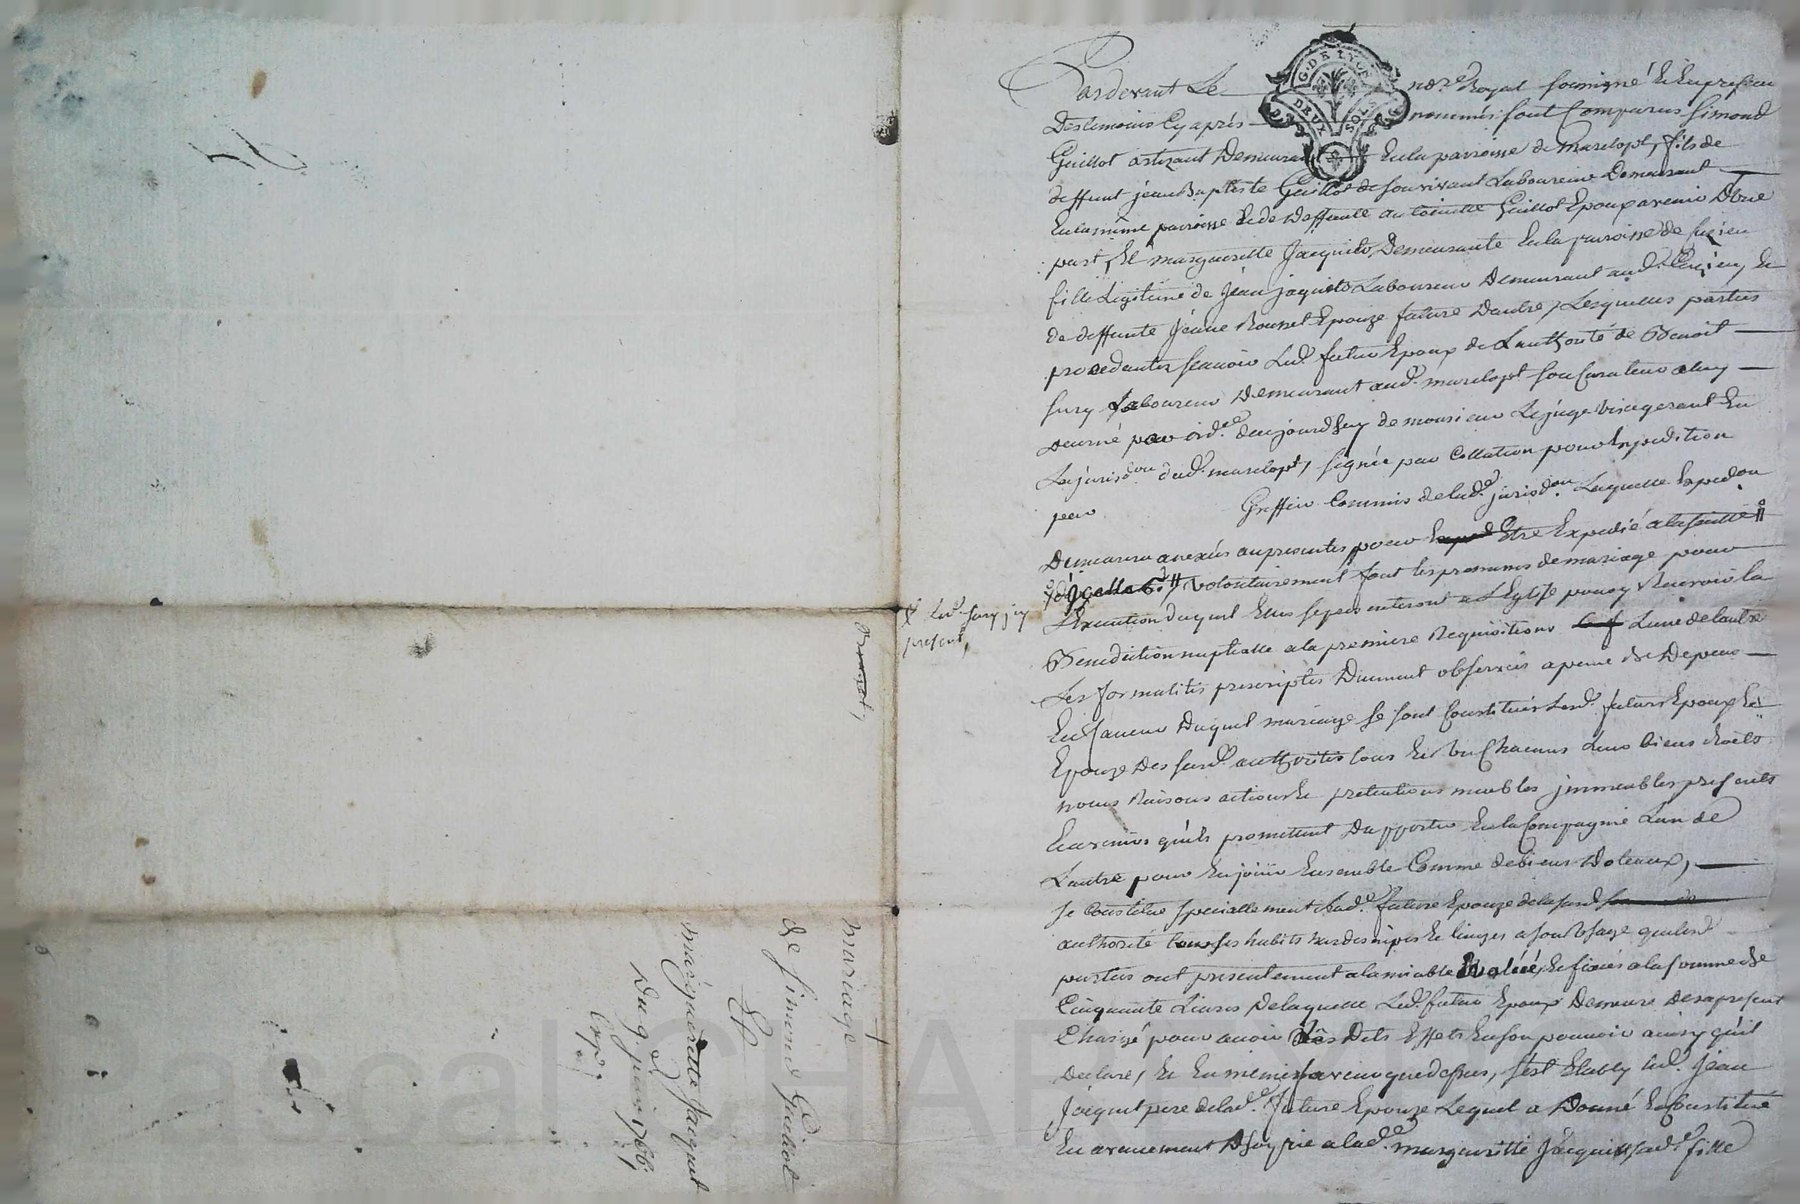 Pardevant Le no.re Royal soussigné Et En presence
Des temoins Cy après nommés sont Comparus Simond
Guillot artizant Demeurant En la paroisse de Marclopt, fils de
deffunt jean Baptiste Guillot de son vivant Laboureur Demeurant
En la même paroisse Et de Deffunte antoinette Guillot Epoux avenir D'une
part, Et margueritte Jacquet Demeurante En la paroisse de
fille Legitime de Jean jaquet Laboureur Demeurant aud. Et
de deffunte Jeanne Rousset Epouze future Dautre, Lesquelles parties
procedantes scavoir Led. futur Epoux de Lauthorité de Benoit
Sury Laboureur Demeurant aud. marclopt son Curateur a luy
decerné par ord.ce daujourdhuy de monsieur Le juge visegerant En
La jurisd.on dud. marclopt, signée par Collation pour Expedition
par Greffier Commis de lad. jurisd.on Laquelle Exped.on
Demeurera anexée au presentes pour Etre Expedié a la suitte
d'ycelles volontairement font les promesses de mariage pour
L'Execution duquel Elles se presenteront a L'Eglise pour y Recevoir la
Benediction nuptialle a la premiere Requisition Lune de lautre
Les formalités prescriptes Duement observées a peine de Depens
En faveur Duquel mariage se sont Constitués Lesd. futurs Epoux Et
Epouze Des susd. authorités tous Et Un Chacuns Leurs biens droits
noms Raisons actions Et pretentions meubles jmmeubles presents
Et avenirs quils promettent Dapporter En la Compagnie Lun de
Lautre pour En joüir Ensemble Comme de biens Doteaux,
se Constitue specialement lad. future Epouze de la susd.
authorité tous ses habits hardes nipes Et linges a son Usage que les
parties ont presentement a lamiable Et fixées a la somme de
Cinquante Livres De laquelle Led. futur Epoux Demeure Des a present
Chargé pour avoir Les Dits Effets En son pouvoir ainsy qu'il
Declare, Et En même faveur que dessus, s'est Etably led. Jean
Jacquet pere de lad. future Epouze Lequel a Donné Et Constitué
En avancement D'hoyrie a lad. margueritte Jacquet sad. fille
G. DE LYON
DEUX SOLS
& Led. Sury jcy
present,
mariage
de Simond Guillot
Et
marguerette Jacquet
Du 9 juin 1766
Exp.é
Pascal CHAR